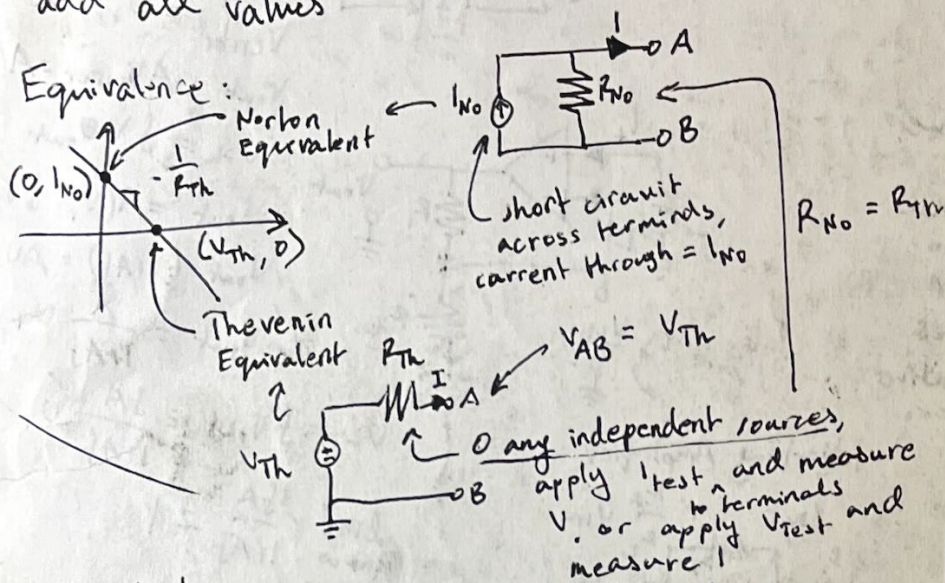 add all values
Equivalence:
Norton
Equivalent
(0, I_No)
- 1/R_Th
(V_Th, 0)
Thevenin
Equivalent
I
A
I_No
R_No
B
short circuit
across terminals,
current through = I_No
R_No = R_Th
V_AB = V_Th
R_Th
I
A
V_Th
B
0 any independent sources,
apply I_test to terminals and measure
V. or apply V_Test and
measure I